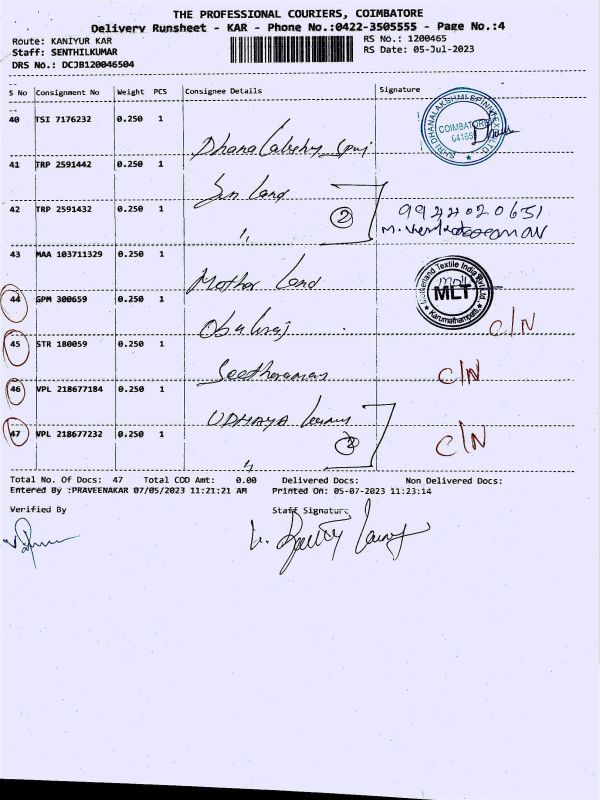 THE PROFESSIONAL COURIERS, COIMBATORE
Delivery Runsheet - KAR - Phone No.:0422-3505555 - Page No.:4
Route: KANIYUR KAR RS No.: 1200465
Staff: SENTHILKUMAR RS Date: 05-Jul-2023
DRS No.: DCJB120046504
S No Consignment No Weight PCS Consignee Details Signature
40 TSI 7176232 0.250 1
COIMBATORE
Dhana
41 TRP 2591442 0.250 1 Sri Land
42 TRP 2591432 0.250 1 " 2 9944020651
43 MAA 103711329 0.250 1 Mother Land
MLT
Karumathampatti
44 GPM 300659 0.250 1 C/N
45 STR 180059 0.250 1 Seetharaman C/N
46 VPL 218677184 0.250 1 UDHAYA
47 VPL 218677232 0.250 1 " 2 C/N
Total No. Of Docs: 47 Total COD Amt: 0.00 Delivered Docs: Non Delivered Docs:
Entered By :PRAVEENAKAR 07/05/2023 11:21:21 AM Printed On: 05-07-2023 11:23:14
Verified By Staff Signature